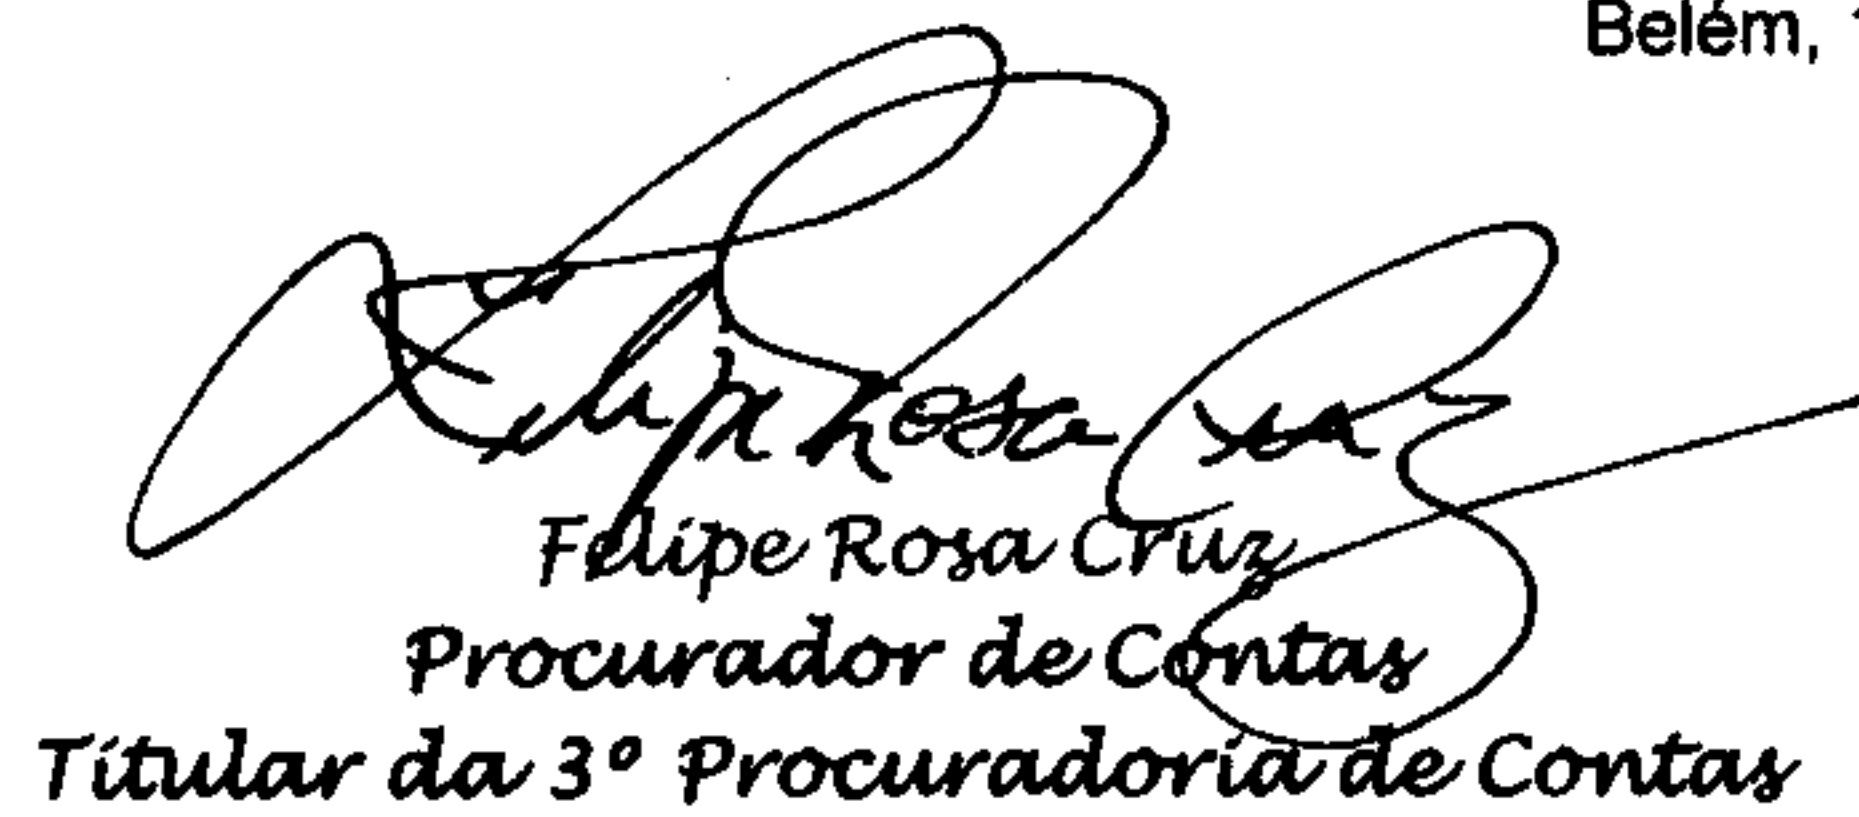 Belém, 1
Felipe Rosa Cruz
Felipe Rosa Cruz
Procurador de Contas
Titular da 3º Procuradoria de Contas